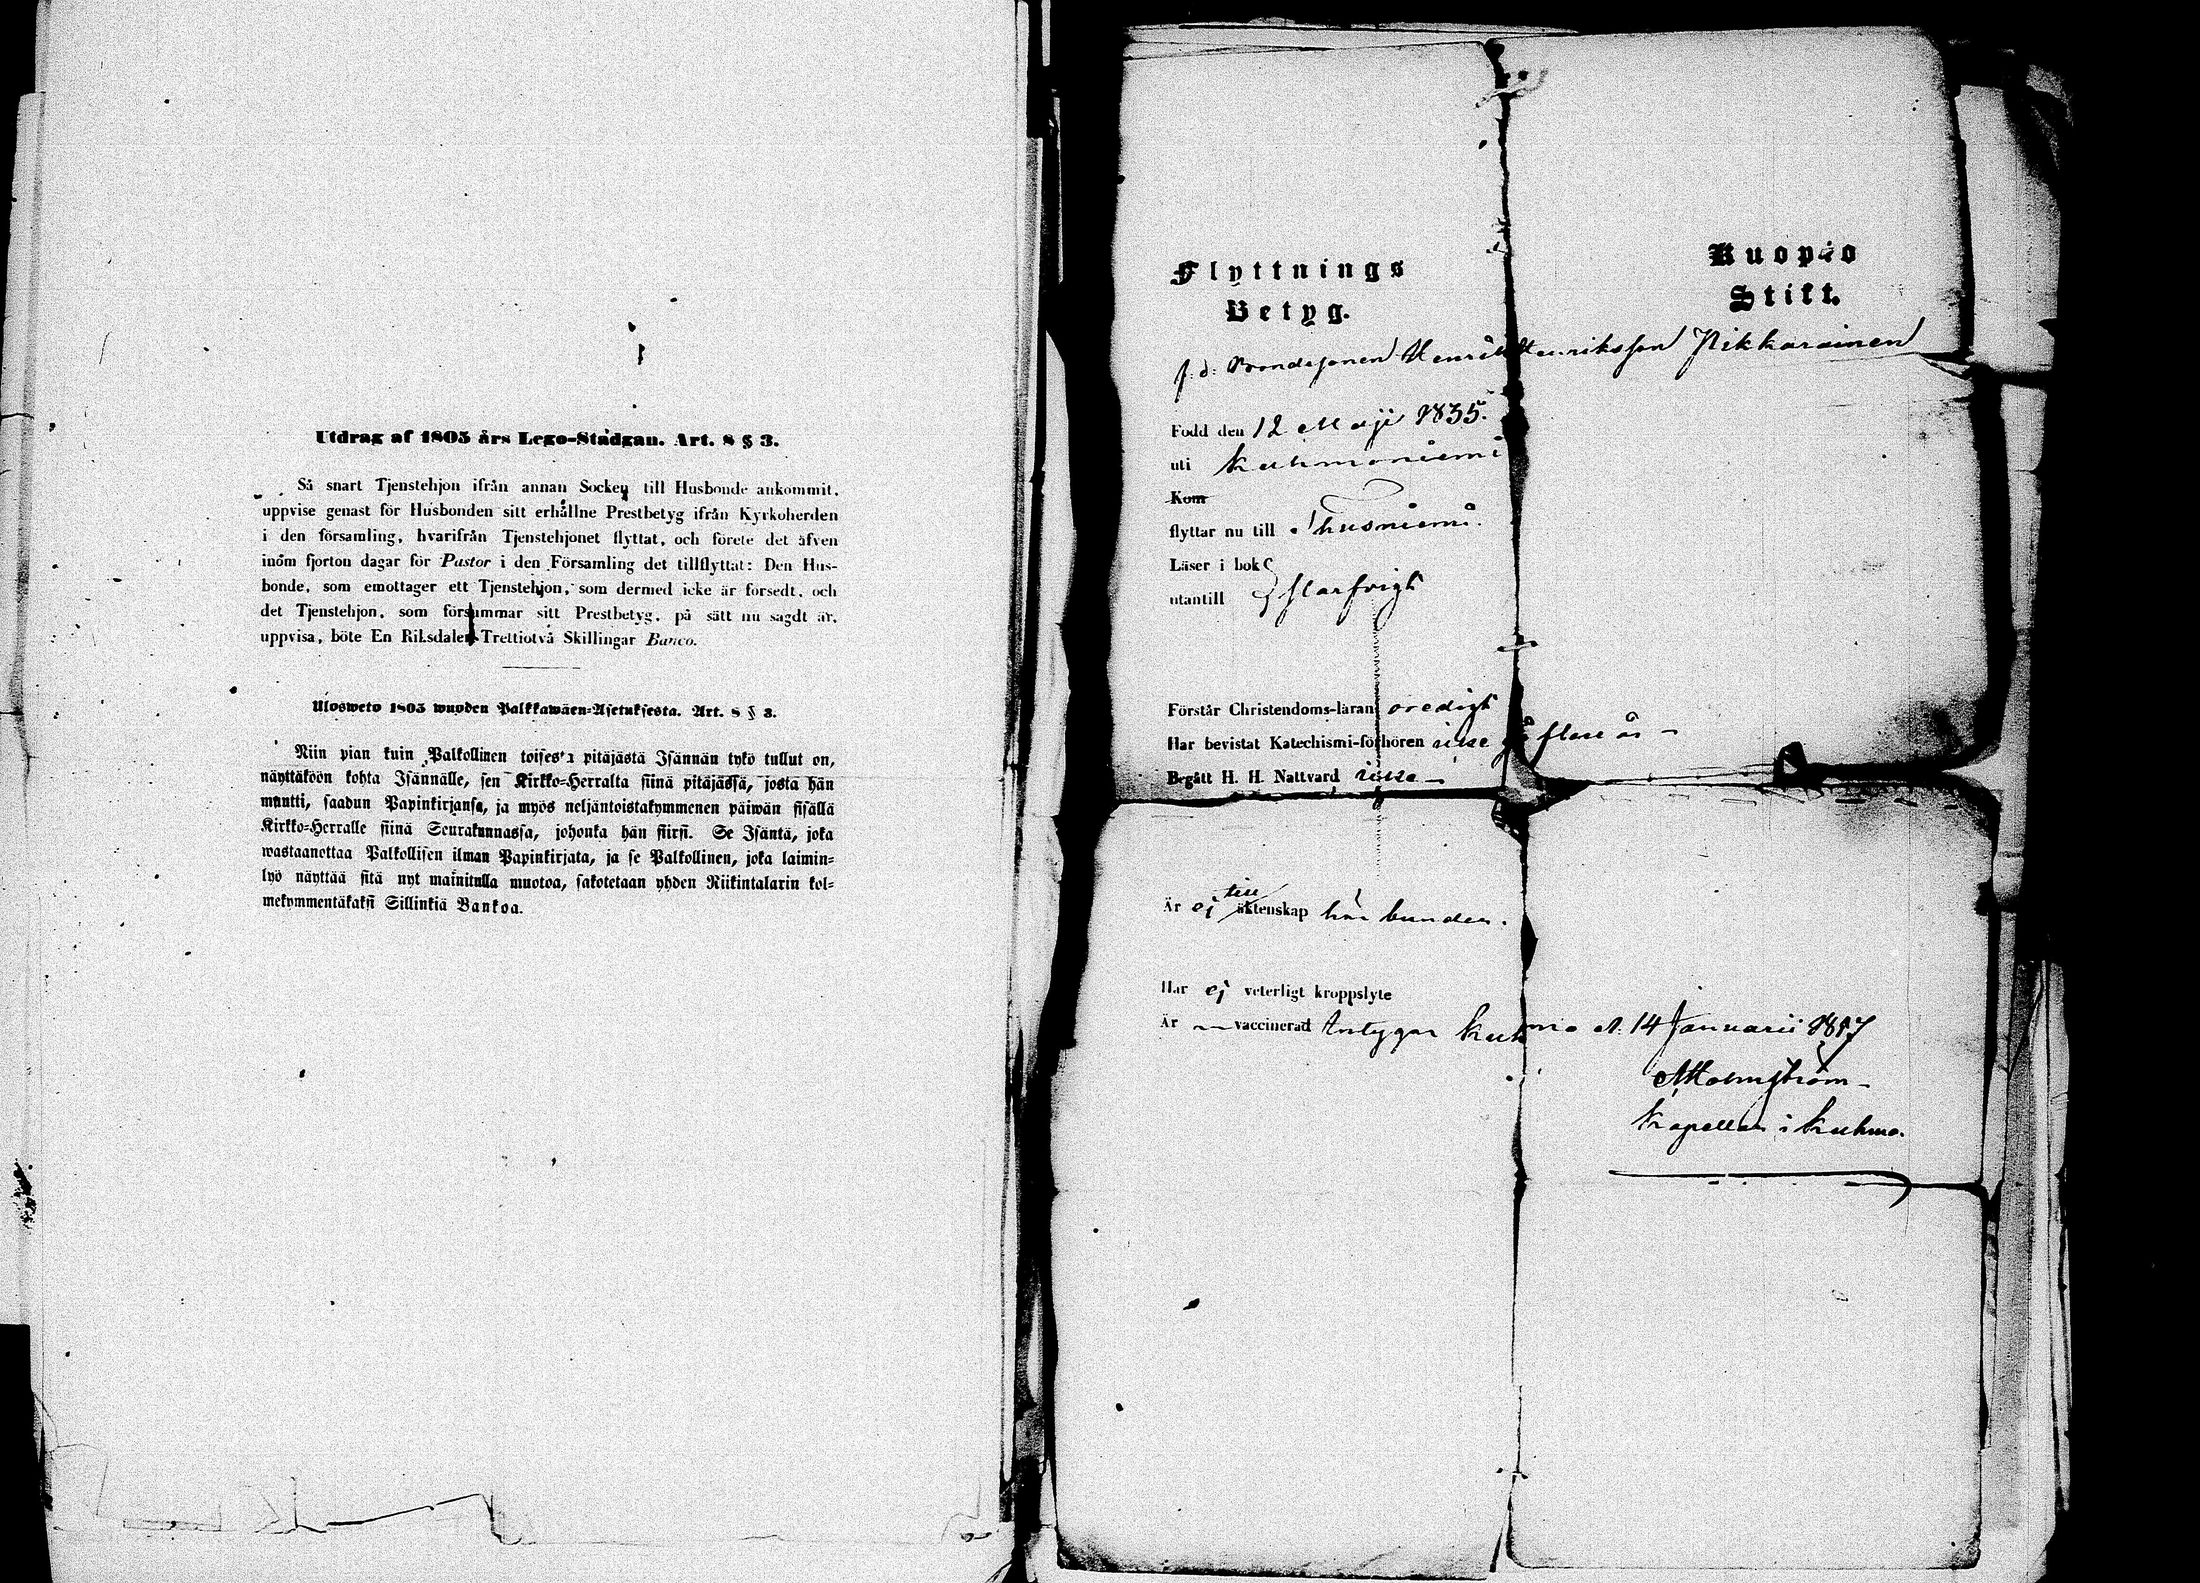 Utdrag af 1805 års Lego-Stadgan. Art. 8 § 3.
Så snart Tjenstehjon ifrån annan Socken till Husbonde ankommit,
uppvise genast för Husbonden sitt erhållne Prestbetyg ifrån Kyrkoherden
i den församling, hvarifrån Tjenstehjonet flyttat, och förete det äfven
inom fjorton dagar för Pastor i den Församling det tillflyttat: Den Hus-
bonde, som emottager ett Tjenstehjon, som dermed icke är försedt, och
det Tjenstehjon, som försummar sitt Prestbetyg, på sätt nu sagdt är,
uppvisa, böte En Riksdaler Trettiotvå Skillingar Banco.
Ulosweto 1805 wuoden Palkkawäen-Asetuksesta. Art. 8 § 3.
Niin pian kuin Palkollinen toisesta pitäjästä Isännän tykö tullut on,
näyttäköön kohta Isännälle, sen Kirkko-Herralta siinä pitäjässä, josta hän
muutti, saadun Papinkirjansa, ja myös neljäntoistakymmenen päiwän sisällä
Kirkko-Herralle siinä Seurakunnassa, johonka hän siirsi. Se Isäntä, joka
wastaanottaa Palkollisen ilman Papinkirjata, ja se Palkollinen, joka laimin-
lyö näyttää sitä nyt mainitulla muotoa, sakotetaan yhden Riikintalarin kol-
mekymmentäkaksi Sillinkiä Bankoa.
Flyttnings
Betyg.
Kuopio
Stift.
f. d. Bondesonen Henrik Henriksson Pikkarainen
Född den 12 Maji 1835.
uti Kuhmoniemi
Kom
flyttar nu till
Läser i bok
utantill
Förstår Christendoms-läran oredigt
Har bevistat Katechismi-förhören icke på flere år –
Begått H. H. Nattvard icke –
Är ej till äktenskap här bunden.
Har ej veterligt kroppslyte
Är — vaccinerad Intygar Kuhmo d. 14 Januarii 1857
Holmström
Kapellan i Kuhmo.